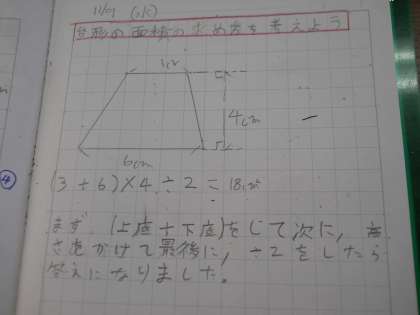 台形の面積の求め方を考えよう
4cm
6cm
(3+6)×4÷2=18cm²
まず、(上底+下底)をして次に、高
さをかけて最後に、÷2をしたら
答えになりました。
④